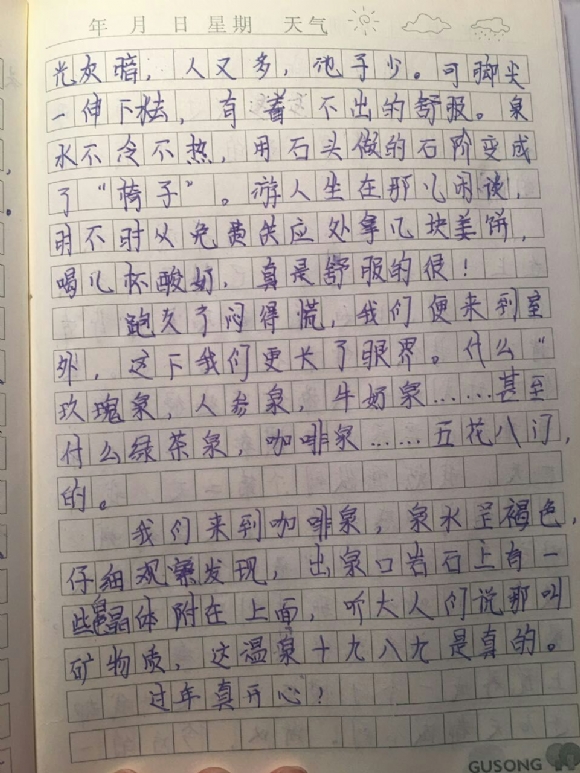 年 月 日 星期 天气
光灰暗，人又多，池子少。可脚尖
一伸下去，有着不出的舒服。泉
水不冷不热，用石头做的石阶变成
了“椅子”。游人坐在那儿闲谈，
时不时从免费供应处拿几块姜饼，
喝几杯酸奶，真是舒服的很！
跑久了闷得慌，我们便来到室
外，这下我们更长了眼界。什么“
玫瑰泉，人参泉，牛奶泉……甚至
什么绿茶泉，咖啡泉……五花八门，
的。
我们来到咖啡泉，泉水呈褐色，
仔细观察发现，出泉口岩石上有一
些晶体附在上面，听大人们说那叫
矿物质，这温泉十九八九是真的。
过年真开心！
GUSONG